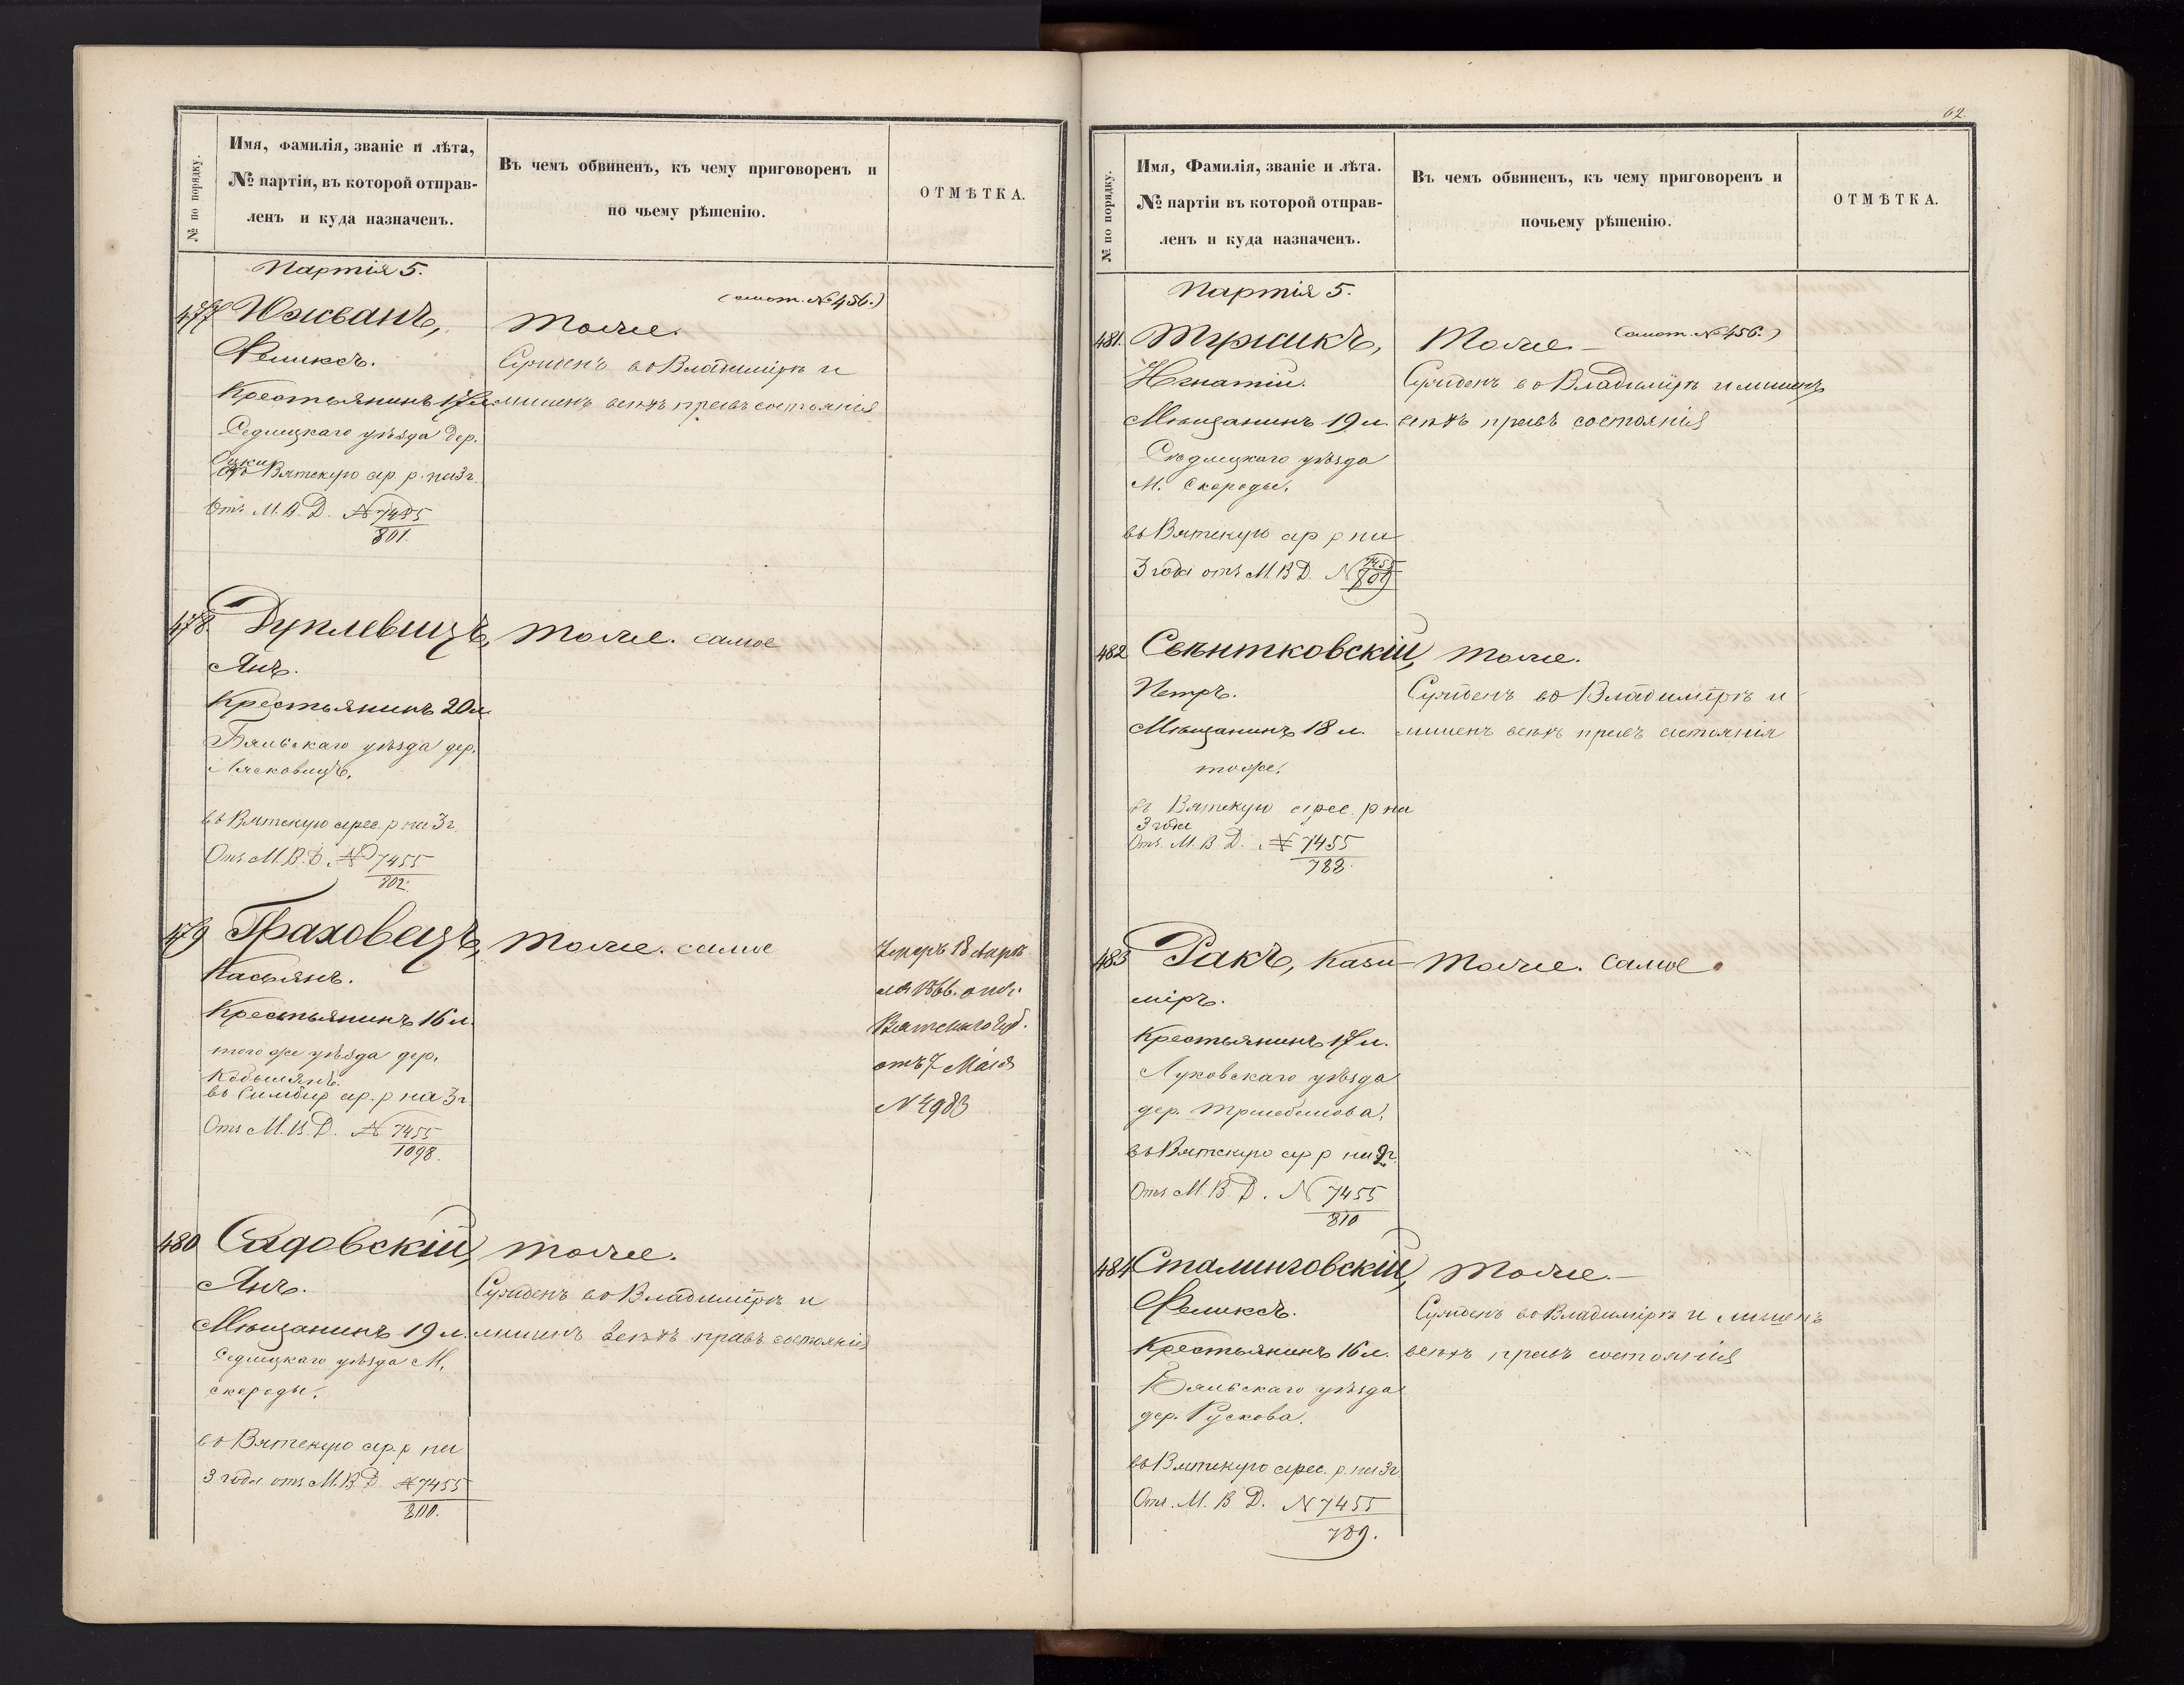 № по порядку.
Имя, фамилія, званіе и лѣта,
№ партіи, въ которой отправ-
ленъ и куда назначенъ.
Въ чемъ обвиненъ, къ чему приговоренъ и
по чьему рѣшенію.
ОТМѢТКА.
Партія 5.
477 Южванъ,
Феликсъ.
Крестьянинъ 17 л.
Седлецкаго уѣзда дер.
въ Вятскую ар. р. на 3 г.
Отъ М. В. Д. № 7455
801.
(смот. № 456.)
Тоже.
Сужденъ во Владимірѣ и
лишенъ всѣхъ правъ состоянія
478. Дуплевичъ,
Янъ.
Крестьянинъ 20 л.
Бяльскаго уѣзда дер.
въ Вятскую арес. р на 3 г.
Отъ М. В. Д. № 7455
802.
Тоже. самое
479 Граховецъ,
Касьянъ.
Крестьянинъ 16 л.
того же уѣзда дер.
Кобылянъ.
въ Симбир ар. р на 3 г.
Отъ М. В. Д. № 7455
1098.
Тоже. самое
Умеръ 18 Апрѣ
ля 1866. отн.
Вятскаго Губ.
отъ 7 Мая
№ 4983
480 Садовскій,
Янъ.
Мѣщанинъ 19 л.
Седлецкаго уѣзда М.
скороды.
въ Вятскую ар. р на
3 года отъ М. В. Д. № 7455
800.
Тоже.
Сужденъ во Владимірѣ и
лишенъ всѣхъ правъ состоянія
62.
№ по порядку.
Имя, Фамилія, званіе и лѣта.
№ партіи въ которой отправ-
ленъ и куда назначенъ.
Въ чемъ обвиненъ, къ чему приговоренъ и
почьему рѣшенію.
ОТМѢТКА.
Партія 5.
481. Турсикъ,
Игнатій.
Мѣщанинъ 19 л.
Сѣдлецкаго уѣзда
М. Скороды.
въ Вятскую ар р на
3 года отъ М. В. Д. № 7455
809
Тоже (смот. № 456.)
Сужденъ во Владимірѣ и лишенъ
всѣхъ правъ состоянія
482 Свѣнтковскій,
Петръ.
Мѣщанинъ 18 л.
тоже.
въ Вятскую арес. р на
3 года
Отъ. М. В. Д. № 7455
788.
Тоже.
Сужденъ во Владимірѣ и
лишенъ всѣхъ правъ состоянія
483 Ракъ, Кази-
міръ.
Крестьянинъ 17 л.
Луковскаго уѣзда
въ Вятскую ар р на 2 г.
Отъ М. В. Д. № 7455
810
Тоже. самое.
484 Сталинговскій,
Феликсъ.
Крестьянинъ 16 л.
Бяльскаго уѣзда
дер. Рускова.
въ Вятскую арес. р. на 3 г.
Отъ. М. В. Д. № 7455
789.
Тоже.
Сужденъ во Владимірѣ и лишенъ
всѣхъ правъ состоянія